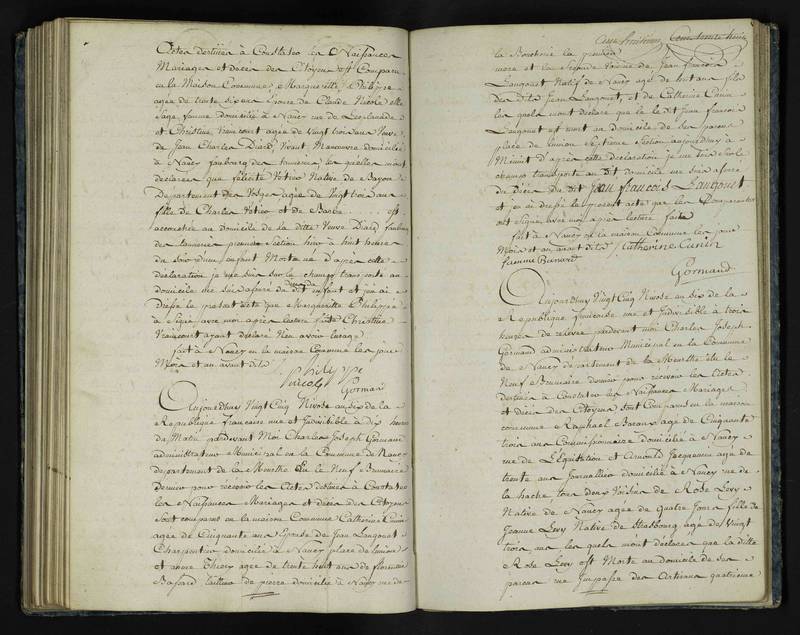 actes destinés à Constater les Naissances
Mariages et décès des Citoyens est Comparu
en la Maison Commune Margueritte Philippe
agée de trente six ans Epouse de Claude Nicole
Sage femme domiciliée à Nancy rue de L'esplanade
et Christine Vraucourt agée de Vingt trois ans
de Jean Charles Diard Vivant Manoeuvre domicilié
à Nancy faubourg des tanneries les quelles m'ont
déclarées que félicité Native de Bayon
Département des Vosges agée de Vingt trois ans
fille de Charles et de Barbe est
accouchée au domicile de la ditte Veuve Diard faubourg
des tanneries première Section hier à huit heures
du soir d'un enfant Mort né d'après cette
déclaration je me suis sur le champ transporté au
domicile me suis assuré du dit enfant et j'en ai
Dressé le présent acte que Margueritte Philippe
a Signé avec moi après lecture faite Christine
Vraucourt ayant déclaré n'en avoir l'usage
fait à Nancy en la maison Commune les jour
Mois et an avant dits
Philippe
Nicole
Gormand
Aujourdhuy Vingt Cinq Nivose an six de la
République française une et Indivisible à Dix heures
du Matin pardevant Moi Charles Joseph Gormand
administrateur Municipal en la Commune de Nancy
département de la Meurthe élu le Neuf Brumaire
Dernier pour recevoir les Actes destinés à Constater
les Naissances Mariages et décès des Citoyens
sont comparus en la maison Commune Catherine Cunin
agée de Cinquante ans Epouse de Jean Langonet
Charpentier domicilié à Nancy place de l'union
et anne Thiery agée de trente huit ans de florentin
Bastard tailleur de pierre domicilié à Nancy rue de
Cent trente huit
la Boucherie la première
mère et la Seconde Voisine de Jean francois
Langonet Natif de Nancy agé de huit ans fils
des dits Jean Langonet, et de Catherine Cunin
les quels m'ont déclaré que le dit Jean francois
Langonet est mort au domicile de ses parens
place de l'union Septieme Section aujourdhuy à
Minuit d'après cette déclaration je me suis sur le
champ transporté au dit domicile me suis assuré
du Décès du dit Jean francois Langonet
et j'en ai dressé le présent acte que les Comparantes
ont Signé avec moi après lecture faite
fait à Nancy en la maison Commune les jour
Mois et an avant dits Catherine Cunin
femme
Gormand
Aujourdhuy Vingt Cinq Nivose an six de la
République française une et Indivisible à trois
heures de relevée pardevant moi Charles Joseph
Gormand administrateur Municipal en la Commune
de Nancy département de la Meurthe élu le
Neuf Brumaire dernier pour recevoir les Actes
destinés à Constater les Naissances Mariages
et décès des Citoyens Sont Comparus en la maison
commune Raphael agé de Cinquante
trois ans Commissionnaire domicilié à Nancy
rue de L'Equitation et Arnould Jacquemin agé de
trente ans Journallier domicilié à Nancy rue de
la hache tous deux Voisins de Rose Levy
Native de Nancy agée de Quatre Jours fille de
Jeanne Levy Native de Strasbourg agée de Vingt
trois ans les quels m'ont déclarés que la ditte
Rose Levy est Morte au domicile de ses
parens rue Impasse des Artisans quatrième